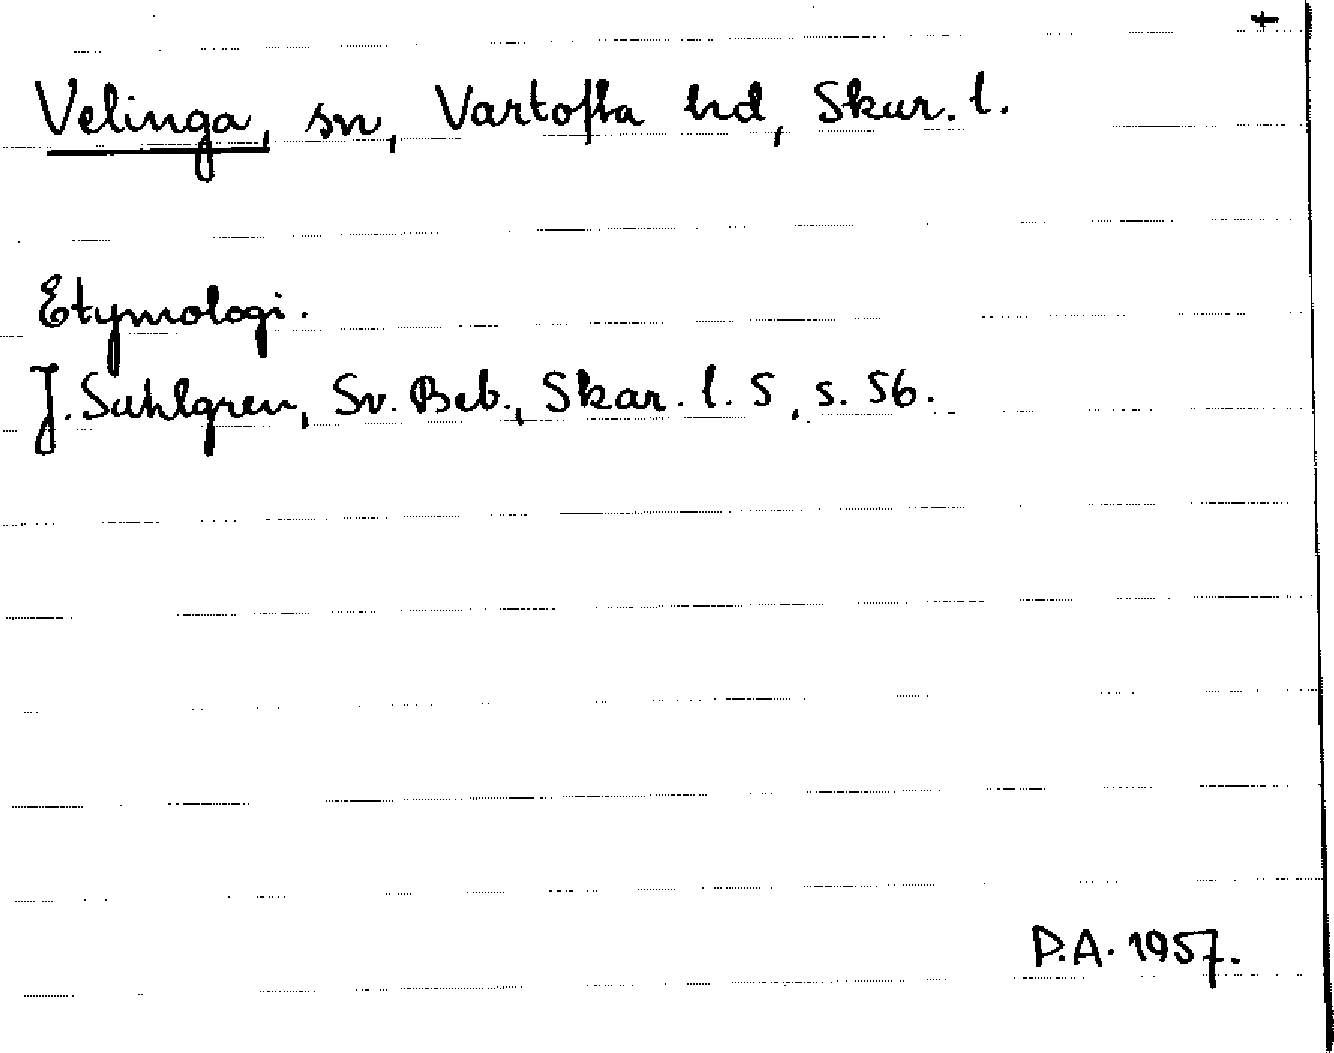 +
Velinga, sn, Vartofta hd, Skar. l.
Etymologi.
J. Sahlgren, Sv. Beb., Skar. l. 5, s. 56.
P.A. 1957.